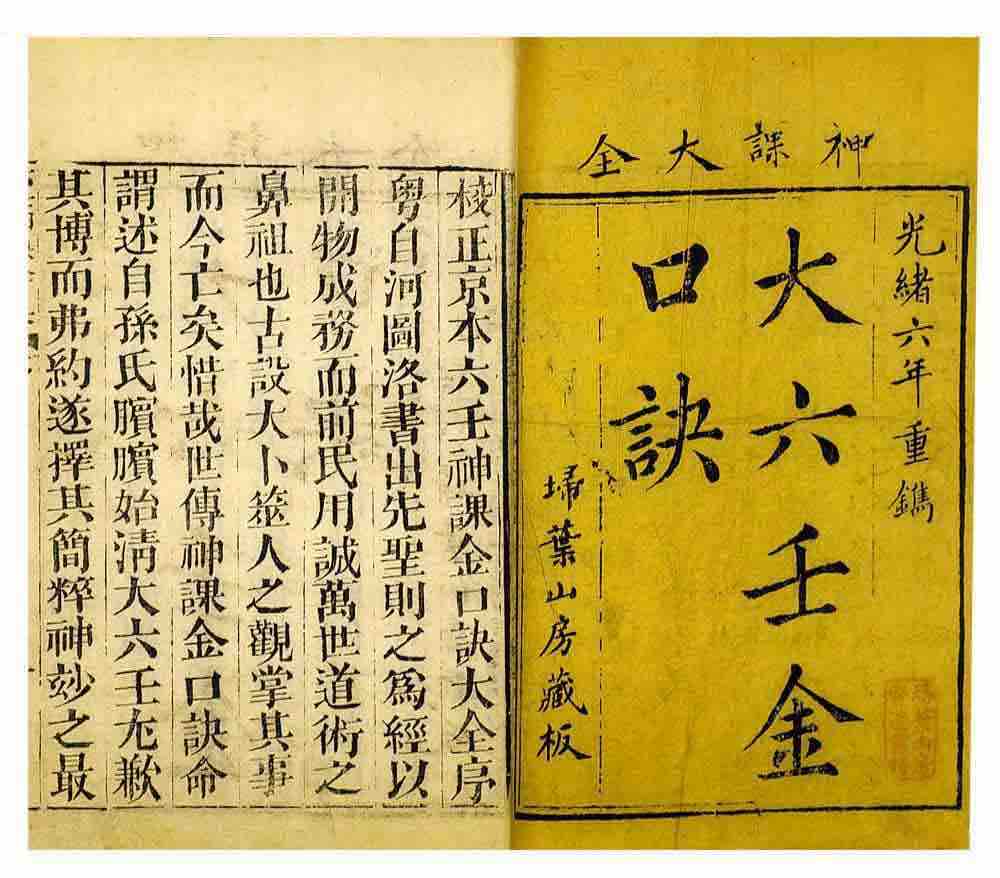 神課大全
光緒六年重鐫
大六壬金
口訣
埽葉山房藏板
校正京本六壬神課金口訣大全序
粵自河圖洛書出先聖則之爲經以
開物成務而前民用誠萬世道術之
鼻祖也古設大卜筮人之觀掌其事
而今亡矣惜哉世傳神課金口訣命
謂述自孫氏臏臏始淸大六壬尢歉
其博而弗約遂擇其簡粹神玅之最